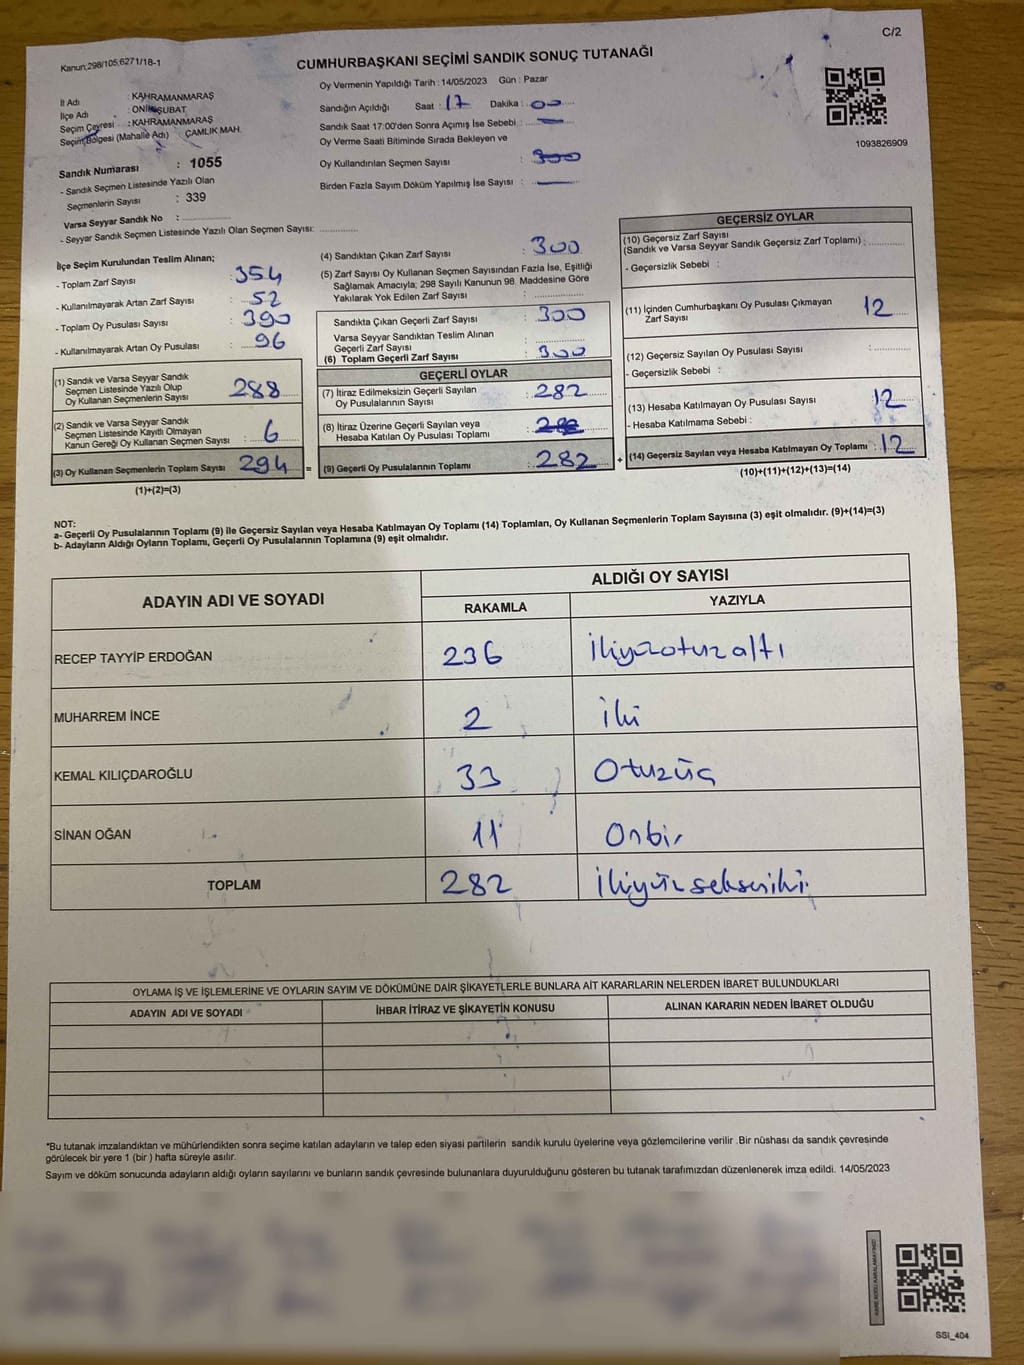 C/2
Kanun:298/105;6271/18-1
CUMHURBAŞKANI SEÇİMİ SANDIK SONUÇ TUTANAĞI
Oy Vermenin Yapıldığı Tarih : 14/05/2023 Gün : Pazar
1093826909
İl Adı : KAHRAMANMARAŞ
İlçe Adı : ONİKİŞUBAT
Seçim Çevresi : KAHRAMANMARAŞ
Seçim Bölgesi (Mahalle Adı) ÇAMLIK MAH.
Sandığın Açıldığı Saat : 17 Dakika : 00
Sandık Saat 17:00'den Sonra Açımış İse Sebebi :
Oy Verme Saati Bitiminde Sırada Bekleyen ve
Oy Kullandırılan Seçmen Sayısı :
Birden Fazla Sayım Döküm Yapılmış İse Sayısı :
Sandık Numarası : 1055
- Sandık Seçmen Listesinde Yazılı Olan
Seçmenlerin Sayısı : 339
Varsa Seyyar Sandık No :
- Seyyar Sandık Seçmen Listesinde Yazılı Olan Seçmen Sayısı:
İlçe Seçim Kurulundan Teslim Alınan;
- Toplam Zarf Sayısı : 354
- Kullanılmayarak Artan Zarf Sayısı : 52
- Toplam Oy Pusulası Sayısı : 390
- Kullanılmayarak Artan Oy Pusulası : 96
(1) Sandık ve Varsa Seyyar Sandık
Seçmen Listesinde Yazılı Olup
Oy Kullanan Seçmenlerin Sayısı : 288
(2) Sandık ve Varsa Seyyar Sandık
Seçmen Listesinde Kayıtlı Olmayan
Kanun Gereği Oy Kullanan Seçmen Sayısı : 6
(3) Oy Kullanan Seçmenlerin Toplam Sayısı 294 =
(1)+(2)=(3)
(4) Sandıktan Çıkan Zarf Sayısı : 300
(5) Zarf Sayısı Oy Kullanan Seçmen Sayısından Fazla İse, Eşitliği
Sağlamak Amacıyla; 298 Sayılı Kanunun 98. Maddesine Göre
Yakılarak Yok Edilen Zarf Sayısı :
Sandıkta Çıkan Geçerli Zarf Sayısı : 300
Varsa Seyyar Sandıktan Teslim Alınan
Geçerli Zarf Sayısı :
(6) Toplam Geçerli Zarf Sayısı : 300
GEÇERLİ OYLAR
(7) İtiraz Edilmeksizin Geçerli Sayılan
Oy Pusulalarının Sayısı : 282
(8) İtiraz Üzerine Geçerli Sayılan veya
Hesaba Katılan Oy Pusulası Toplamı :
(9) Geçerli Oy Pusulalarının Toplamı : 282 +
GEÇERSİZ OYLAR
(10) Geçersiz Zarf Sayısı
(Sandık ve Varsa Seyyar Sandık Geçersiz Zarf Toplamı) :
- Geçersizlik Sebebi :
(11) İçinden Cumhurbaşkanı Oy Pusulası Çıkmayan
Zarf Sayısı : 12
(12) Geçersiz Sayılan Oy Pusulası Sayısı :
- Geçersizlik Sebebi :
(13) Hesaba Katılmayan Oy Pusulası Sayısı : 12
- Hesaba Katılmama Sebebi :
(14) Geçersiz Sayılan veya Hesaba Katılmayan Oy Toplamı : 12
(10)+(11)+(12)+(13)=(14)
NOT:
a- Geçerli Oy Pusulalarının Toplamı (9) ile Geçersiz Sayılan veya Hesaba Katılmayan Oy Toplamı (14) Toplamları, Oy Kullanan Seçmenlerin Toplam Sayısına (3) eşit olmalıdır. (9)+(14)=(3)
b- Adayların Aldığı Oyların Toplamı, Geçerli Oy Pusulalarının Toplamına (9) eşit olmalıdır.
ADAYIN ADI VE SOYADI ALDIĞI OY SAYISI
RAKAMLA YAZIYLA
RECEP TAYYİP ERDOĞAN 236 İkiyüzotuzaltı
MUHARREM İNCE 2 İki
KEMAL KILIÇDAROĞLU 33 Otuzüç
SİNAN OĞAN 11 Onbir
TOPLAM 282 İkiyüzsekseniki
OYLAMA İŞ VE İŞLEMLERİNE VE OYLARIN SAYIM VE DÖKÜMÜNE DAİR ŞİKAYETLERLE BUNLARA AİT KARARLARIN NELERDEN İBARET BULUNDUKLARI
ADAYIN ADI VE SOYADI İHBAR İTİRAZ VE ŞİKAYETİN KONUSU ALINAN KARARIN NEDEN İBARET OLDUĞU
*Bu tutanak imzalandıktan ve mühürlendikten sonra seçime katılan adayların ve talep eden siyasi partilerin sandık kurulu üyelerine veya gözlemcilerine verilir .Bir nüshası da sandık çevresinde
görülecek bir yere 1 (bir ) hafta süreyle asılır.
Sayım ve döküm sonucunda adayların aldığı oyların sayılarını ve bunların sandık çevresinde bulunanlara duyurulduğunu gösteren bu tutanak tarafımızdan düzenlenerek imza edildi. 14/05/2023
SSİ_404